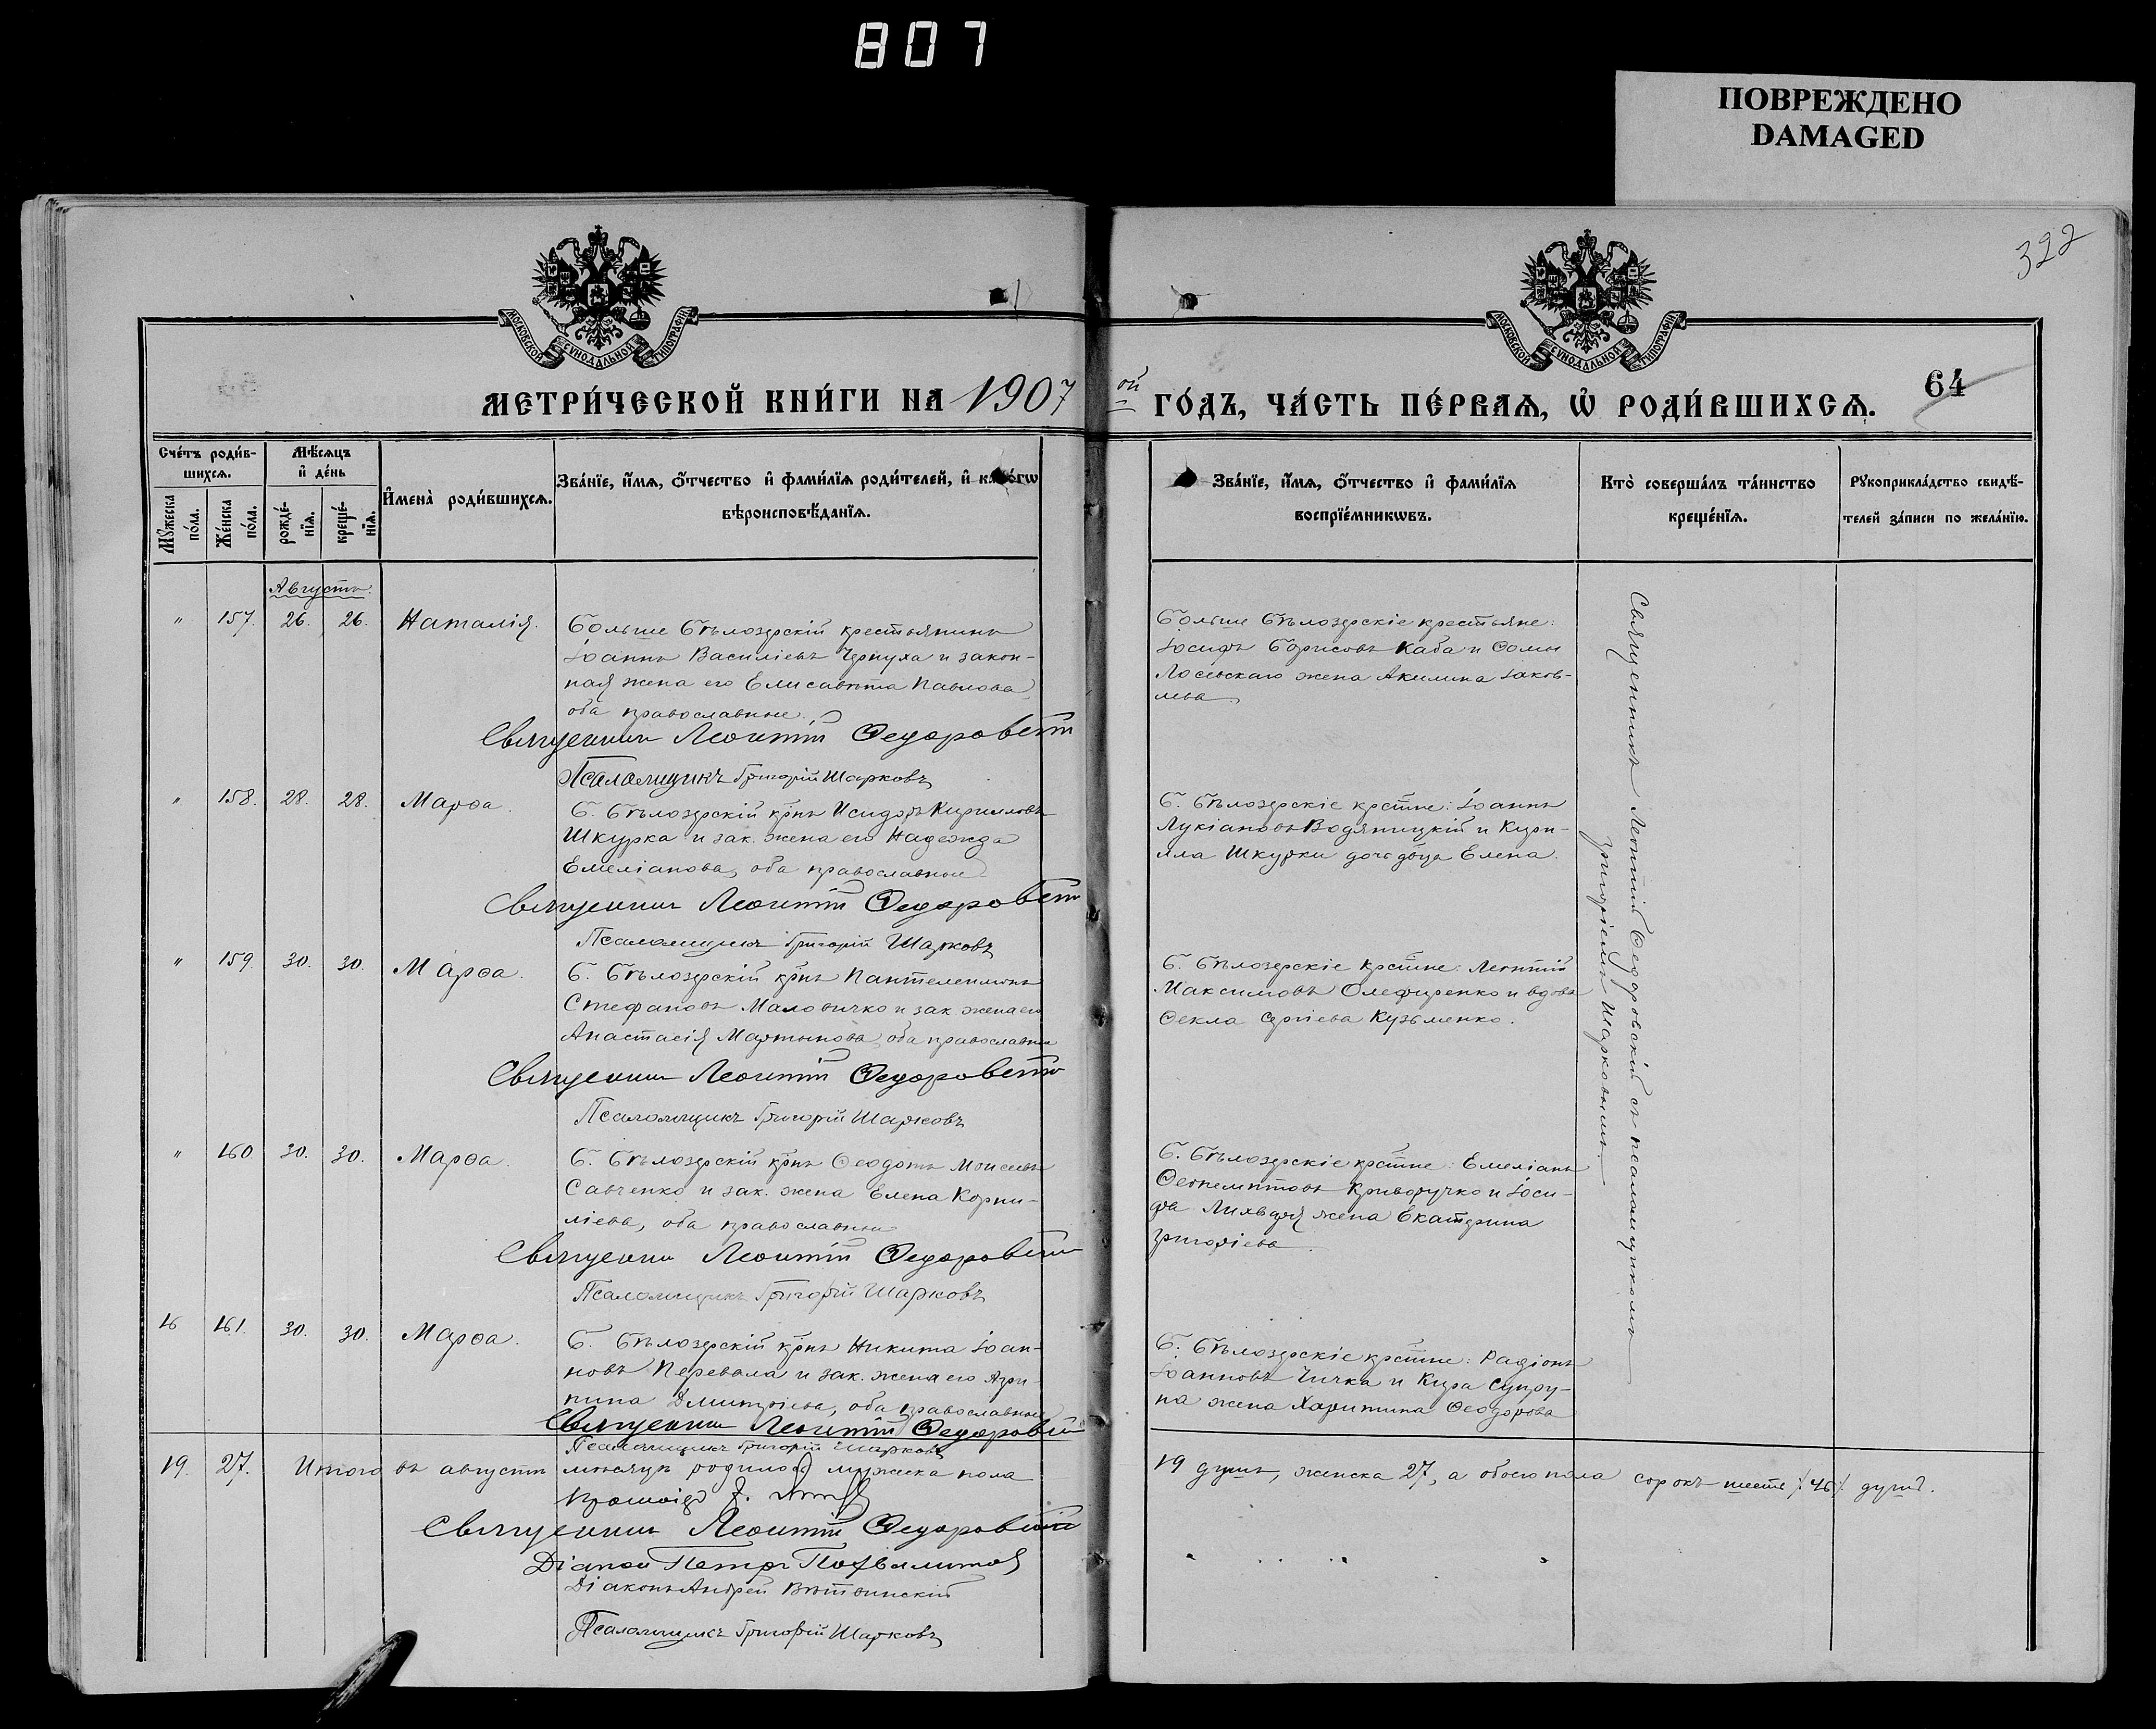 807
ПОВРЕЖДЕНО
DAMAGED
392
МОСКОВСКОЙ СУНОДАЛЬНОЙ ТИПОГРАФІИ
МОСКОВСКОЙ СУНОДАЛЬНОЙ ТИПОГРАФІИ
МЕТРИ́ЧЕСКОЙ КНИ́ГИ НА 1907
ой ГО́ДЪ, ЧА́СТЬ ПЕ́РВАѦ, Ѡ҆ РОДИ́ВШИХСѦ. 64
Сче́тъ роди́вшихсѧ.
Мꙋ́жеска по́ла.
Же́нска по́ла.
Мѣ́сѧцъ и҆ де́нь
рожде́нїѧ.
креще́нїѧ.
И҆мена̀ роди́вшихсѧ.
Зва́нїе, и҆́мѧ, ѻ҆́тчество и҆ фами́лїѧ роди́телей, и҆
вѣроисповѣ́данїѧ.
Зва́нїе, и҆́мѧ, ѻ҆́тчество и҆ фами́лїѧ
воспрїе́мникѡвъ.
Кто̀ соверша́лъ та́инство
креще́нїѧ.
Рꙋкоприкла́дство свидѣ́-
телей за́писи по жела́нїю.
Августъ.
" 157. 26. 26. Наталія.
Больше Бѣлозерскій крестьянинъ
Іоаннъ Василіевъ Чернуха и закон-
ная жена его Елисавѣта Павлова
оба православные.
Священникъ Леонтій Федоровскій
Псаломщикъ Григорій Шарковъ
Больше Бѣлозерскіе крестьяне:
Іосифъ Борисовъ Каба и Ѳомы
Лосевскаго жена Акилина Іаков-
лева.
" 158. 28. 28. Марѳа.
Б. Бѣлозерскій крнъ Исидоръ Кирилловъ
Шкурка и зак. жена его Надежда
Емеліанова, оба православные
Священникъ Леонтій Федоровскій
Псаломщикъ Григорій Шарковъ
Б. Бѣлозерскіе крстне: Іоаннъ
Лукіановъ Водяницкій и Кири-
лла Шкурки дочь двца Елена.
" 159. 30. 30. Марѳа.
Б. Бѣлозерскій крнъ Пантелеимонъ
Стефановъ Маловичко и зак. жена его
Анастасія Мартынова, оба православные
Священникъ Леонтій Федоровскій
Псаломщикъ Григорій Шарковъ
Б. Бѣлозерскіе крстне: Леонтій
Максимовъ Олефиренко и вдова
Ѳекла Сергіева Кузьменко.
" 160 30. 30. Марѳа.
Б. Бѣлозерскій крнъ Ѳеодотъ Моисеевъ
Савченко и зак. жена Елена Корни-
ліева, оба православные
Священникъ Леонтій Федоровскій
Псаломщикъ Григорій Шарковъ
Б. Бѣлозерскіе крстне: Емеліанъ
Ѳеопемптовъ Криворучко и Іоси-
фа Лихваря жена Екатерина
Григоріева.
16 161. 30. 30. Марѳа.
Б. Бѣлозерскій крнъ Никита Іоан-
новъ Перевала и зак. жена его Агри-
пина Димитріева, оба православные
Священникъ Леонтій Федоровскій
Псаломщикъ Григорій Шарковъ
Б. Бѣлозерскіе крстне: Радіонъ
Іоанновъ Чичка и Кира Супру-
на жена Харитина Ѳеодорова
Священникъ Леонтій Федоровскій съ псаломщикомъ
Григоріемъ Шарковымъ.
19. 27. Итого въ августѣ мѣсяцѣ родилось мужеска пола
19 душъ, женска 27, а обоего пола сорокъ шесть /46/ душъ.
Священникъ Леонтій Федоровскій
Діаконъ Петръ
Діаконъ Андрей
Псаломщикъ Григорій Шарковъ